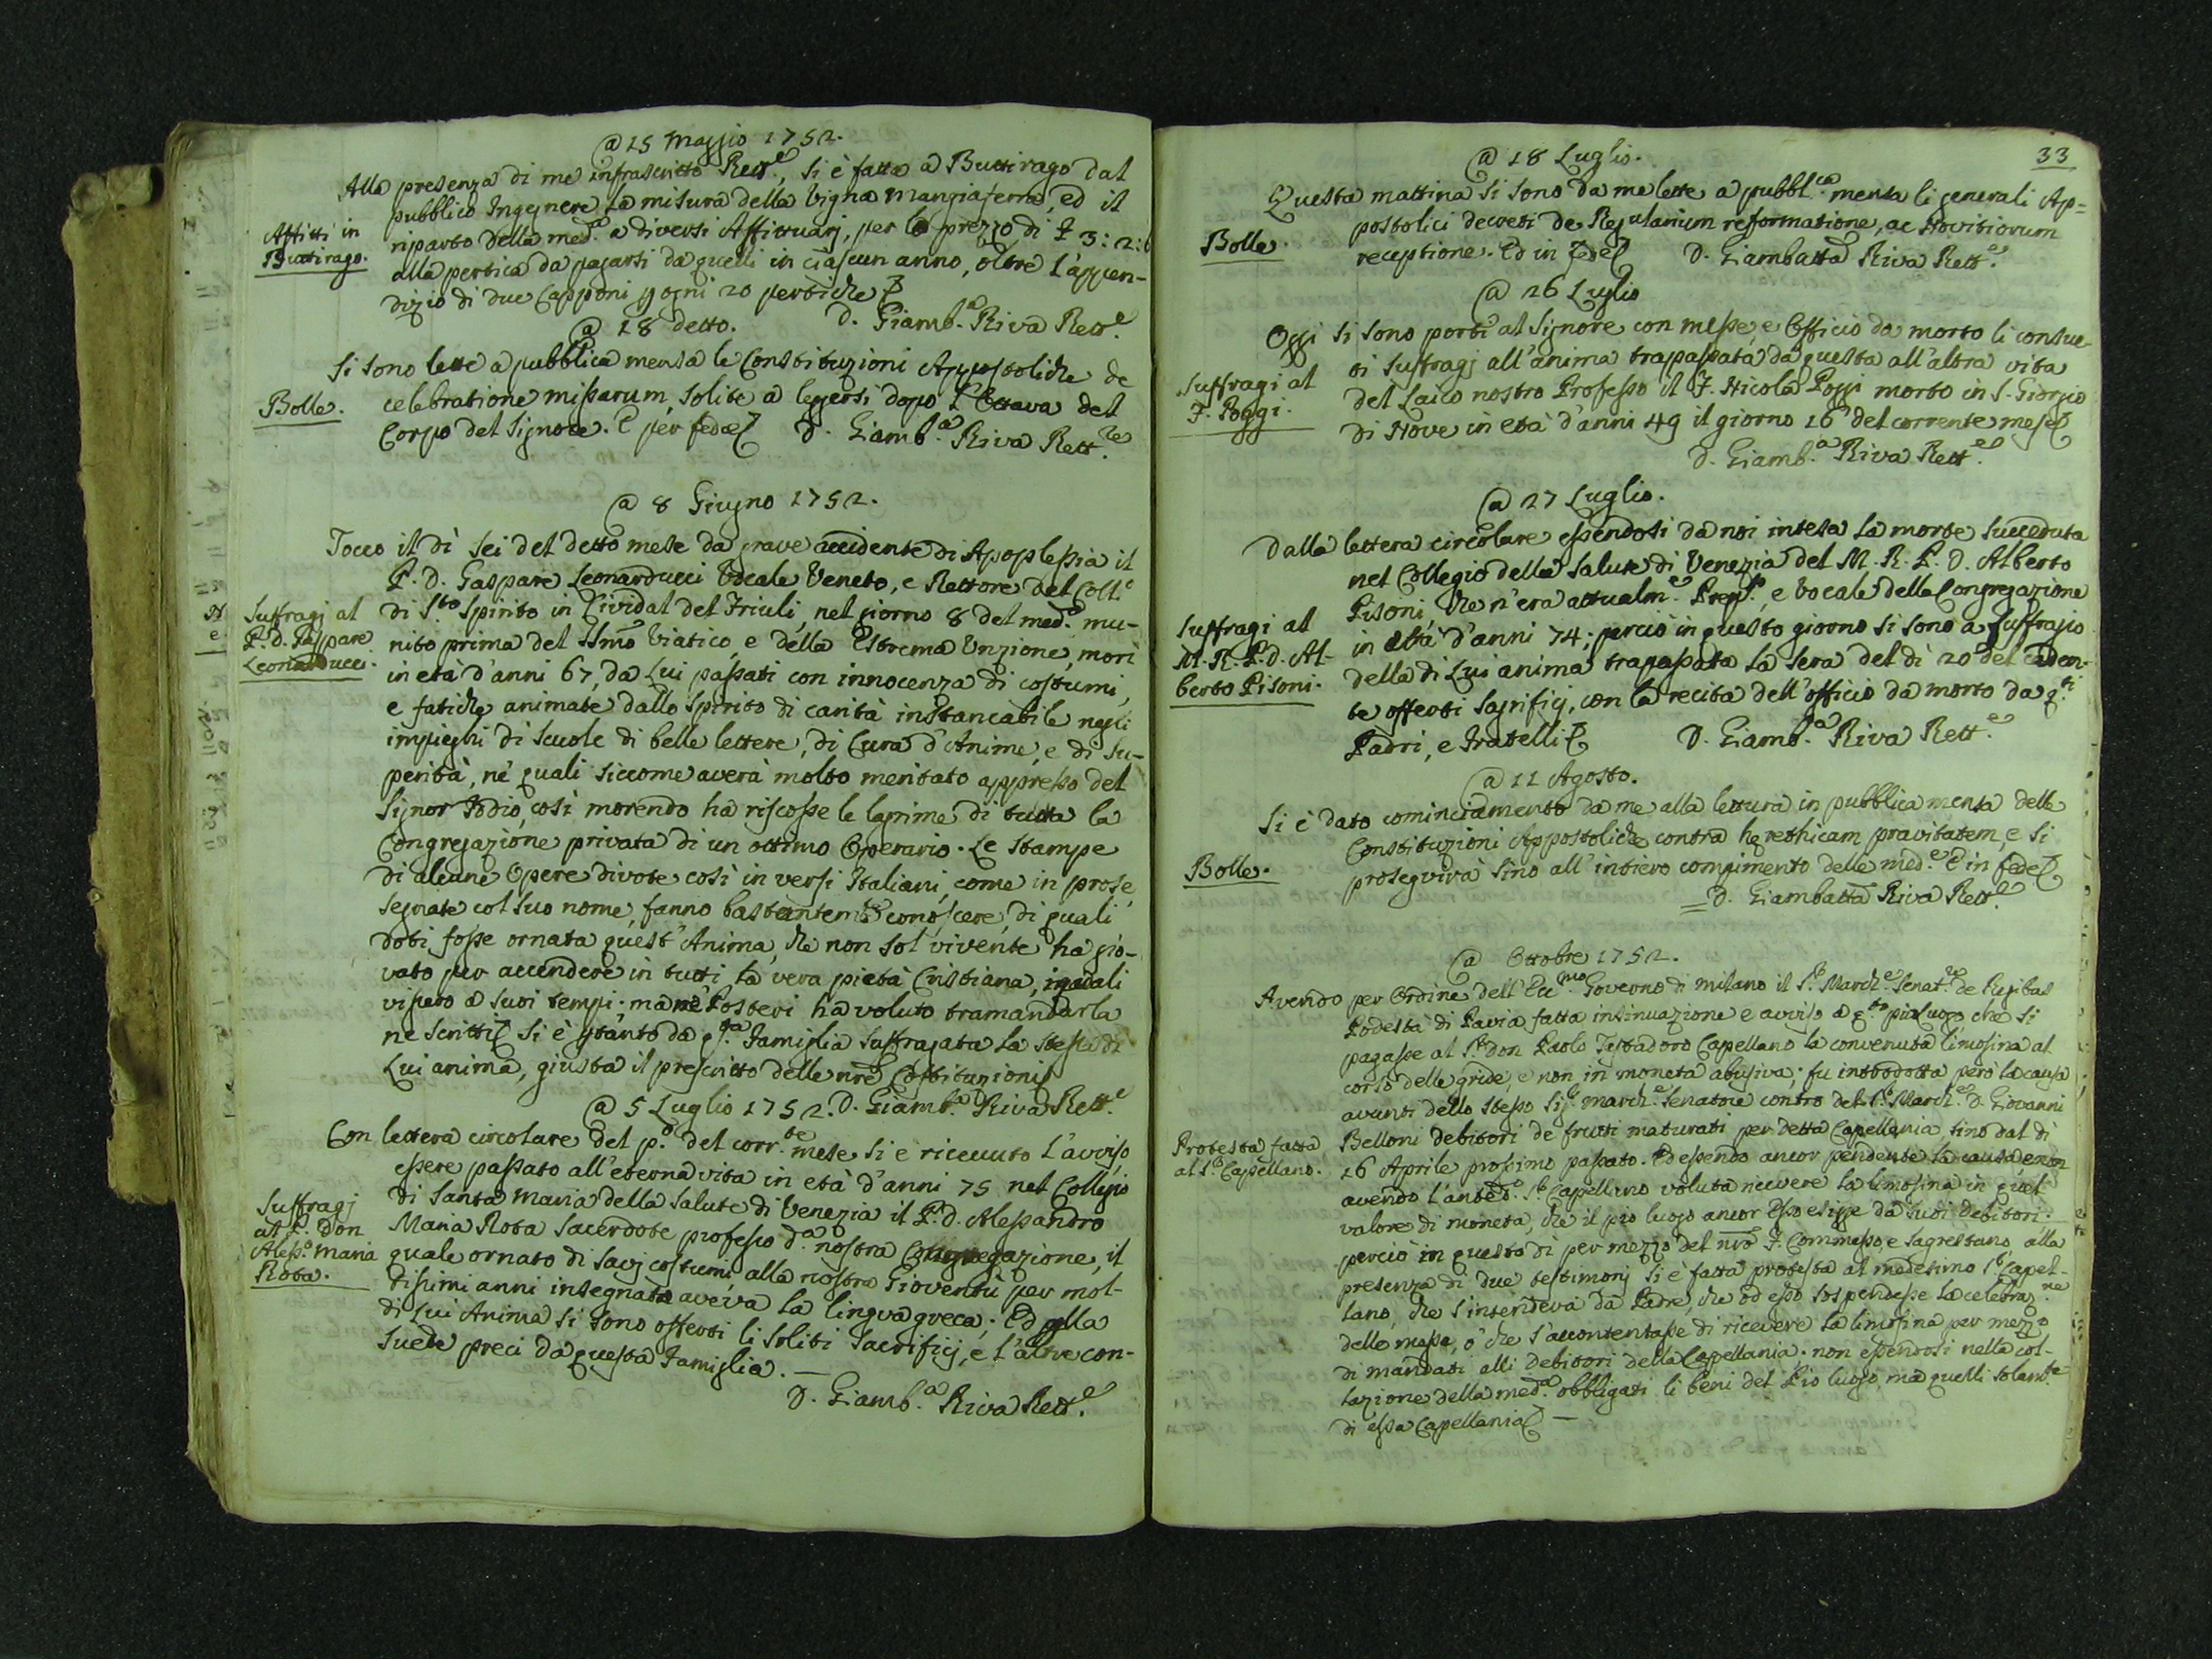 @ 15 Maggio 1752.
Alla presenza di me infrascritto Rett.e, si è fatta a Buttirago dal
pubblico Ingegnere la misura della vigna Mangiaterra, ed il
Affitti in
Buttirago.
riparto della med.a a diversi Affittuarj, per lo prezzo di £ 3:2:6
alla pertica da pagarsi da quelli in ciascun anno, oltre l'appen-
dizio di due Capponi p ogni 20 pertiche
D. Giamb.a Riva Rett.e
@ 18 detto.
Si sono lette a pubblica mensa le Constituzioni Appostoliche de
Bolle.
celebratione missarum, solite a legersi dopo l'Ottava del
Corpo del Signore. E per fede D. Giamb.a Riva Rett.re
@ 8 Giugno 1752.
Tocco il dì sei del detto mese da grave accidente di Apoplessia il
P. D. Gaspare Leonarducci Vocale Veneto, e Rettore del Coll.o
Suffragj al
P. D. Gaspare
Leonarducci.
di S.to Spirito in Cividal del Friuli, nel giorno 8 del med.o mu-
nito prima del SSmo Viatico, e della Estrema Unzione, morì
in età d'anni 67, da Lui passati con innocenza di costumi,
e fatiche animate dallo spirito di carità instancabile negli
impieghi di scuole di belle lettere, di Cura d'Anime, e di su-
perità, né quali siccome averà molto meritato appresso del
Signor Iddio, così morendo ha riscosse le lagrime di tutta la
Congregazione privata di un ottimo Operario. Le stampe
di alcune Opere divote così in versi Italiani, come in prose
segnate col suo nome, fanno bastantem.te conoscere, di quali
doti fosse ornata quest'Anima, che non sol vivente ha gio-
vato per accendere in tutti la vera pietà Cristiana,
a suoi tempi: ma né Posteri ha voluto tramandarla
ne scritti Si è ptanto da q.sta Famiglia suffragata la stessa di
Lui anima, giusta il prescritto delle nre Costituzioni
D. Giamb.a Riva Rett.e
@ 5 Luglio 1752.
Con lettera circolare del p.o del corr.te mese si è ricevuto l'avviso
essere passato all'eterna vita in età d'anni 75 nel Collegio
di Santa Maria della Salute di Venezia il P. D. Alessandro
Suffragj
al P. Don
Aless.o Maria
Rota.
Maria Rota Sacerdote professo d.a nostra Congregazione, il
quale ornato di savj costumi alla nostra Gioventù per mol-
tissimi anni insegnata aveva la lingua greca: Ed alla
di Lui Anima si sono offerti li soliti sacrificj, e l'altre con-
suete preci da questa Famiglia. —
D. Giamb.a Riva Rett.e
33
@ 18 Luglio.
Questa mattina si sono da me lette a pubbl.ca mensa li generali Ap=
postolici decreti de Regularium reformatione, ac Novitiorum
Bolle.
receptione. Ed in fede D. Giambatta Riva Rett.e
@ 26 Luglio
Oggi si sono porti al Signore con messe, e Officio da morto li consue-
ti suffragj all'anima trapassata da questa all'altra vita
Suffragi al
F. Poggi.
del Laico nostro Professo il F. Nicola Poggi morto in S. Giorgio
di Nove in età d'anni 49 il giorno 16 del corrente mese
D. Giamb.a Riva Rett.e
@ 27 Luglio.
Dalla lettera circolare essendosi da noi intesa la morte succeduta
nel Collegio della Salute di Venezia del M. R. P. D. Alberto
Pisoni, che n'era attualm.e Prep.to, e Vocale della Congregazione
Suffragi al
M. R. P. D. Al-
berto Pisoni.
in età d'anni 74; perciò in questo giorno si sono a suffragio
della di Lui anima trapassata la sera del dì 20 del caden-
te offerti sagrificj, con la recita dell'officio da morto da q.ti
Padri, e Fratelli D. Giamb.a Riva Rett.e
@ 11 Agosto.
Si è dato cominciamento da me alla lettura in pubblica mensa delle
Constituzioni Appostoliche contra herethicam pravitatem, e si
Bolle.
proseguirà sino all'intiero compimento delle med.e E in fede
D. Giambatta Riva Rett.e
@ Ottobre 1752.
Avendo per Ordine dell'Ecc.mo Governo di Milano il S.r March.e Senat.re
Podestà di Pavia fatta insinuazione e avviso a q.to pio Luogo che si
pagasse al S.r Don Paolo Testadoro Capellano la convenuta limosina al
corso delle gride, e non in moneta abusiva; fu introdotta però la causa
avanti dello stesso Sig.r March.e Senatore contro del S.r March.e D. Giovanni
Protesta fatta
al S.r Capellano.
Belloni debitori de frutti maturati per detta Capellania, sino dal dì
16 Aprile prossimo passato. Ed essendo ancor pendente la causa e non
avendo l'anted.o S.r Capellano voluta ricevere la limosina in quel
valore di moneta, che il pio luogo ancor Esso esigge da suoi debitori:
perciò in questo dì per mezzo del nro F. Commesso, e Sagrestano, alla
presenza di due testimonj si è fatta protesta al medesimo S.r Capel-
lano, che s'intendeva da Padre, che od esso sospendesse la celebraz.ne
delle messe, o che s'accontentasse di ricevere la limosina per mezzo
di mandati alli debitori della Capellania: non essendosi nella col-
lazione della med.a obbligati li beni del Pio luogo, ma quelli solam.te
di essa Capellania —